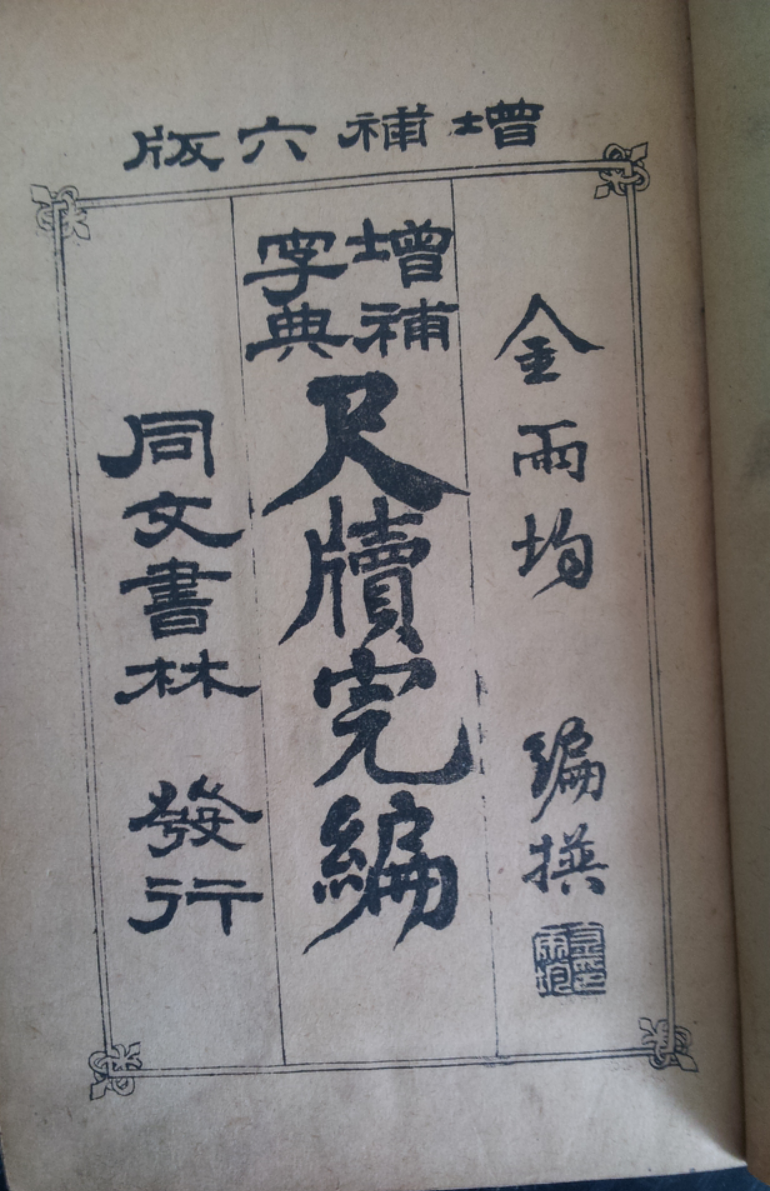 增補六版
金雨均 編撰
增補字典尺牘完編
同文書林 發行